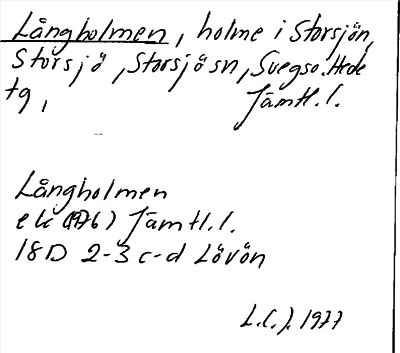 Långholmen, holme i Storsjön,
Storsjö, Storsjö sn, Svegso. Hede
tg, Jämtl. l.
Långholmen
ek (1976) Jämtl. l.
18D 2-3 c-d Lövön
L.C.J. 1977